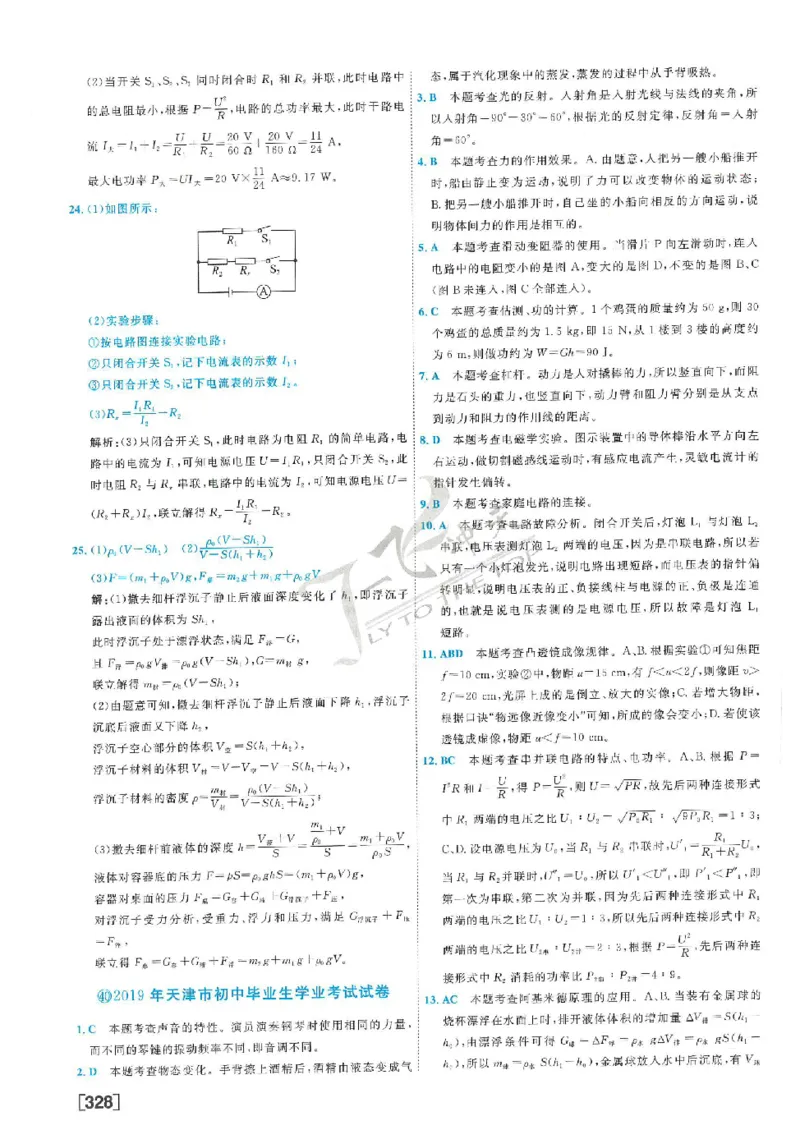 (2)当开关 S₁、S₂、S₃ 同时闭合时 R₁ 和 R₂ 并联,此时电路中
的总电阻最小,根据 P=U²/R,电路的总功率最大,此时干路电
流 I大=I₁+I₂=U/R₁+U/R₂=20 V/60 Ω+20 V/160 Ω=11/24 A,
最大电功率 P大=UI大=20 V×11/24 A≈9.17 W。
24.(1)如图所示:
R₁ S₁
R₂ Rₓ S₂
A
(2)实验步骤:
①按电路图连接实验电路;
②只闭合开关 S₁,记下电流表的示数 I₁;
③只闭合开关 S₂,记下电流表的示数 I₂。
(3)Rₓ=I₁R₁/I₂-R₂
解析:(3)只闭合开关 S₁,此时电路为电阻 R₁ 的简单电路,电
路中的电流为 I₁,可知电源电压 U=I₁R₁,只闭合开关 S₂,此
时电阻 R₂ 与 Rₓ 串联,电路中的电流为 I₂,可知电源电压 U=
(R₂+Rₓ)I₂,联立解得 Rₓ=I₁R₁/I₂-R₂。
25.(1)ρ₀(V-Sh₁) (2)ρ₀(V-Sh₁)/V-S(h₁+h₂)
(3)F=(m₁+ρ₀V)g,F桌=m₂g+m₁g+ρ₀gV
解:(1)撤去细杆浮沉子静止后液面深度变化了 h₁,即浮沉子
露出液面的体积为 Sh₁,
此时浮沉子处于漂浮状态,满足 F浮=G,
且 F浮=ρ₀gV排=ρ₀g(V-Sh₁),G=m材 g,
联立解得 m材=ρ₀(V-Sh₁);
(2)由题意可知,撤去细杆浮沉子静止后液面下降 h₂,浮沉子
沉底后液面又下降 h₂,
浮沉子空心部分的体积 V空=S(h₁+h₂),
浮沉子材料的体积 V材=V-V空=V-S(h₁+h₂),
浮沉子材料的密度 ρ=m材/V材=ρ₀(V-Sh₁)/V-S(h₁+h₂);
(3)撤去细杆前液体的深度 h=V液+V/S=m₁/ρ₀+V/S=m₁+ρ₀V/ρ₀S,
液体对容器底的压力 F=pS=ρ₀ghS=(m₁+ρ₀V)g,
容器对桌面的压力 F桌=G容+G液+G浮沉子+F压,
对浮沉子受力分析,受重力、浮力和压力,满足 G浮沉子+F压
=F浮,
联立得 F桌=G容+G液+F浮=m₂g+m₁g+ρ₀gV。
㊵2019 年天津市初中毕业生学业考试试卷
1.C 本题考查声音的特性。演员演奏钢琴时使用相同的力量,
而不同的琴键的振动频率不同,即音调不同。
2.D 本题考查物态变化。手背擦上酒精后,酒精由液态变成气
[328]
态,属于汽化现象中的蒸发,蒸发的过程中从手背吸热。
3.B 本题考查光的反射。入射角是入射光线与法线的夹角,所
以入射角=90°-30°=60°,根据光的反射定律,反射角=入射
角=60°。
4.B 本题考查力的作用效果。A.由题意,人把另一艘小船推开
时,船由静止变为运动,说明了力可以改变物体的运动状态;
B.把另一艘小船推开时,自己坐的小船向相反的方向运动,说
明物体间力的作用是相互的。
5.A 本题考查滑动变阻器的使用。当滑片 P 向左滑动时,连入
电路中的电阻变小的是图 A,变大的是图 D,不变的是图 B、C
(图 B 未连入,图 C 全部连入)。
6.C 本题考查估测、功的计算。1 个鸡蛋的质量约为 50 g,则 30
个鸡蛋的总质量约为 1.5 kg,即 15 N,从 1 楼到 3 楼的高度约
为 6 m,则做功约为 W=Gh=90 J。
7.A 本题考查杠杆。动力是人对撬棒的力,所以竖直向下,而阻
力是石头的重力,也竖直向下,动力臂和阻力臂分别是从支点
到动力和阻力的作用线的距离。
8.D 本题考查电磁学实验。图示装置中的导体棒沿水平方向左
右运动,做切割磁感线运动时,有感应电流产生,灵敏电流计的
指针发生偏转。
9.B 本题考查家庭电路的连接。
10.A 本题考查电路故障分析。闭合开关后,灯泡 L₁ 与灯泡 L₂
串联,电压表测灯泡 L₂ 两端的电压,因为是串联电路,所以若
只有一个小灯泡发光,说明电路出现短路,而电压表的指针偏
转明显,说明电压表的正、负接线柱与电源的正、负极是连通
的,也就是说电压表测的是电源电压,所以故障是灯泡 L₁
短路。
11.ABD 本题考查凸透镜成像规律。A、B.根据实验①可知焦距
f=10 cm,实验②中,物距 u=15 cm,有 f<u<2f,则像距 v>
2f=20 cm,光屏上成的是倒立、放大的实像;C.若增大物距,
根据口诀“物远像近像变小”可知,所成的像会变小;D.若使该
透镜成虚像,物距 u<f=10 cm。
12.BC 本题考查串并联电路的特点、电功率。A、B.根据 P=
I²R 和 I=U/R,得 P=U²/R,则 U=√PR,故先后两种连接形式
中 R₁ 两端的电压之比 U₁∶U₂=√P₀R₁∶√9P₀R₁=1∶3;
C、D.设电源电压为 U₀,当 R₁ 与 R₂ 串联时,U′₁=R₁/R₁+R₂U₀,
当 R₁ 与 R₂并联时,U″₁=U₀,所以 U′₁<U″₁,即 P′₁<P″₁,即
第一次为串联,第二次为并联,因为先后两种连接形式中 R₁
两端的电压之比 U₁∶U₂=1∶3,所以先后两种连接形式中 R₂
两端的电压之比 U₂串∶U₂并=2∶3,根据 P=U²/R,先后两种连
接形式中 R₂ 消耗的功率比 P₂串∶P₂并=4∶9。
13.AC 本题考查阿基米德原理的应用。A、B.当装有金属球的
烧杯漂浮在水面上时,排开液体体积的增加量 ΔV排=S(h₁-
h₀),由漂浮条件可得 G球=ΔF浮=ρ水 gΔV排=ρ水 gS(h₁-
h₀),所以 m球=ρ水 S(h₁-h₀),金属球放入水中后沉底,有 V球
FLY TO THE TOP